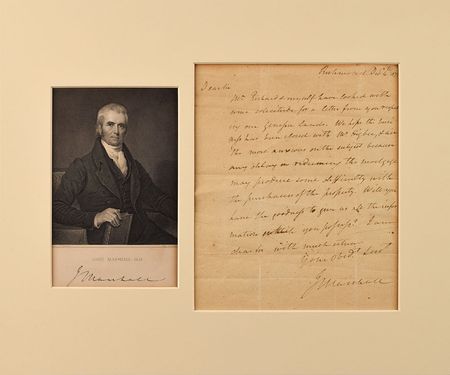 JOHN MARSHALL
J Marshall
Richmond
Dear Sir
Mr. myself have looked with
some solicitude for a letter from you
our Genesee Lands. We hope the
has been closed with Mr. Higbee, & are
the more anxious on the subject because
any delay in redeeming the mortgage
may produce some difficulty with
the purchasers of the property. Will you
have the goodness to give us all the infor
mation which you possess? I am
dear Sir with much
Your Obedt. Servt.
J Marshall